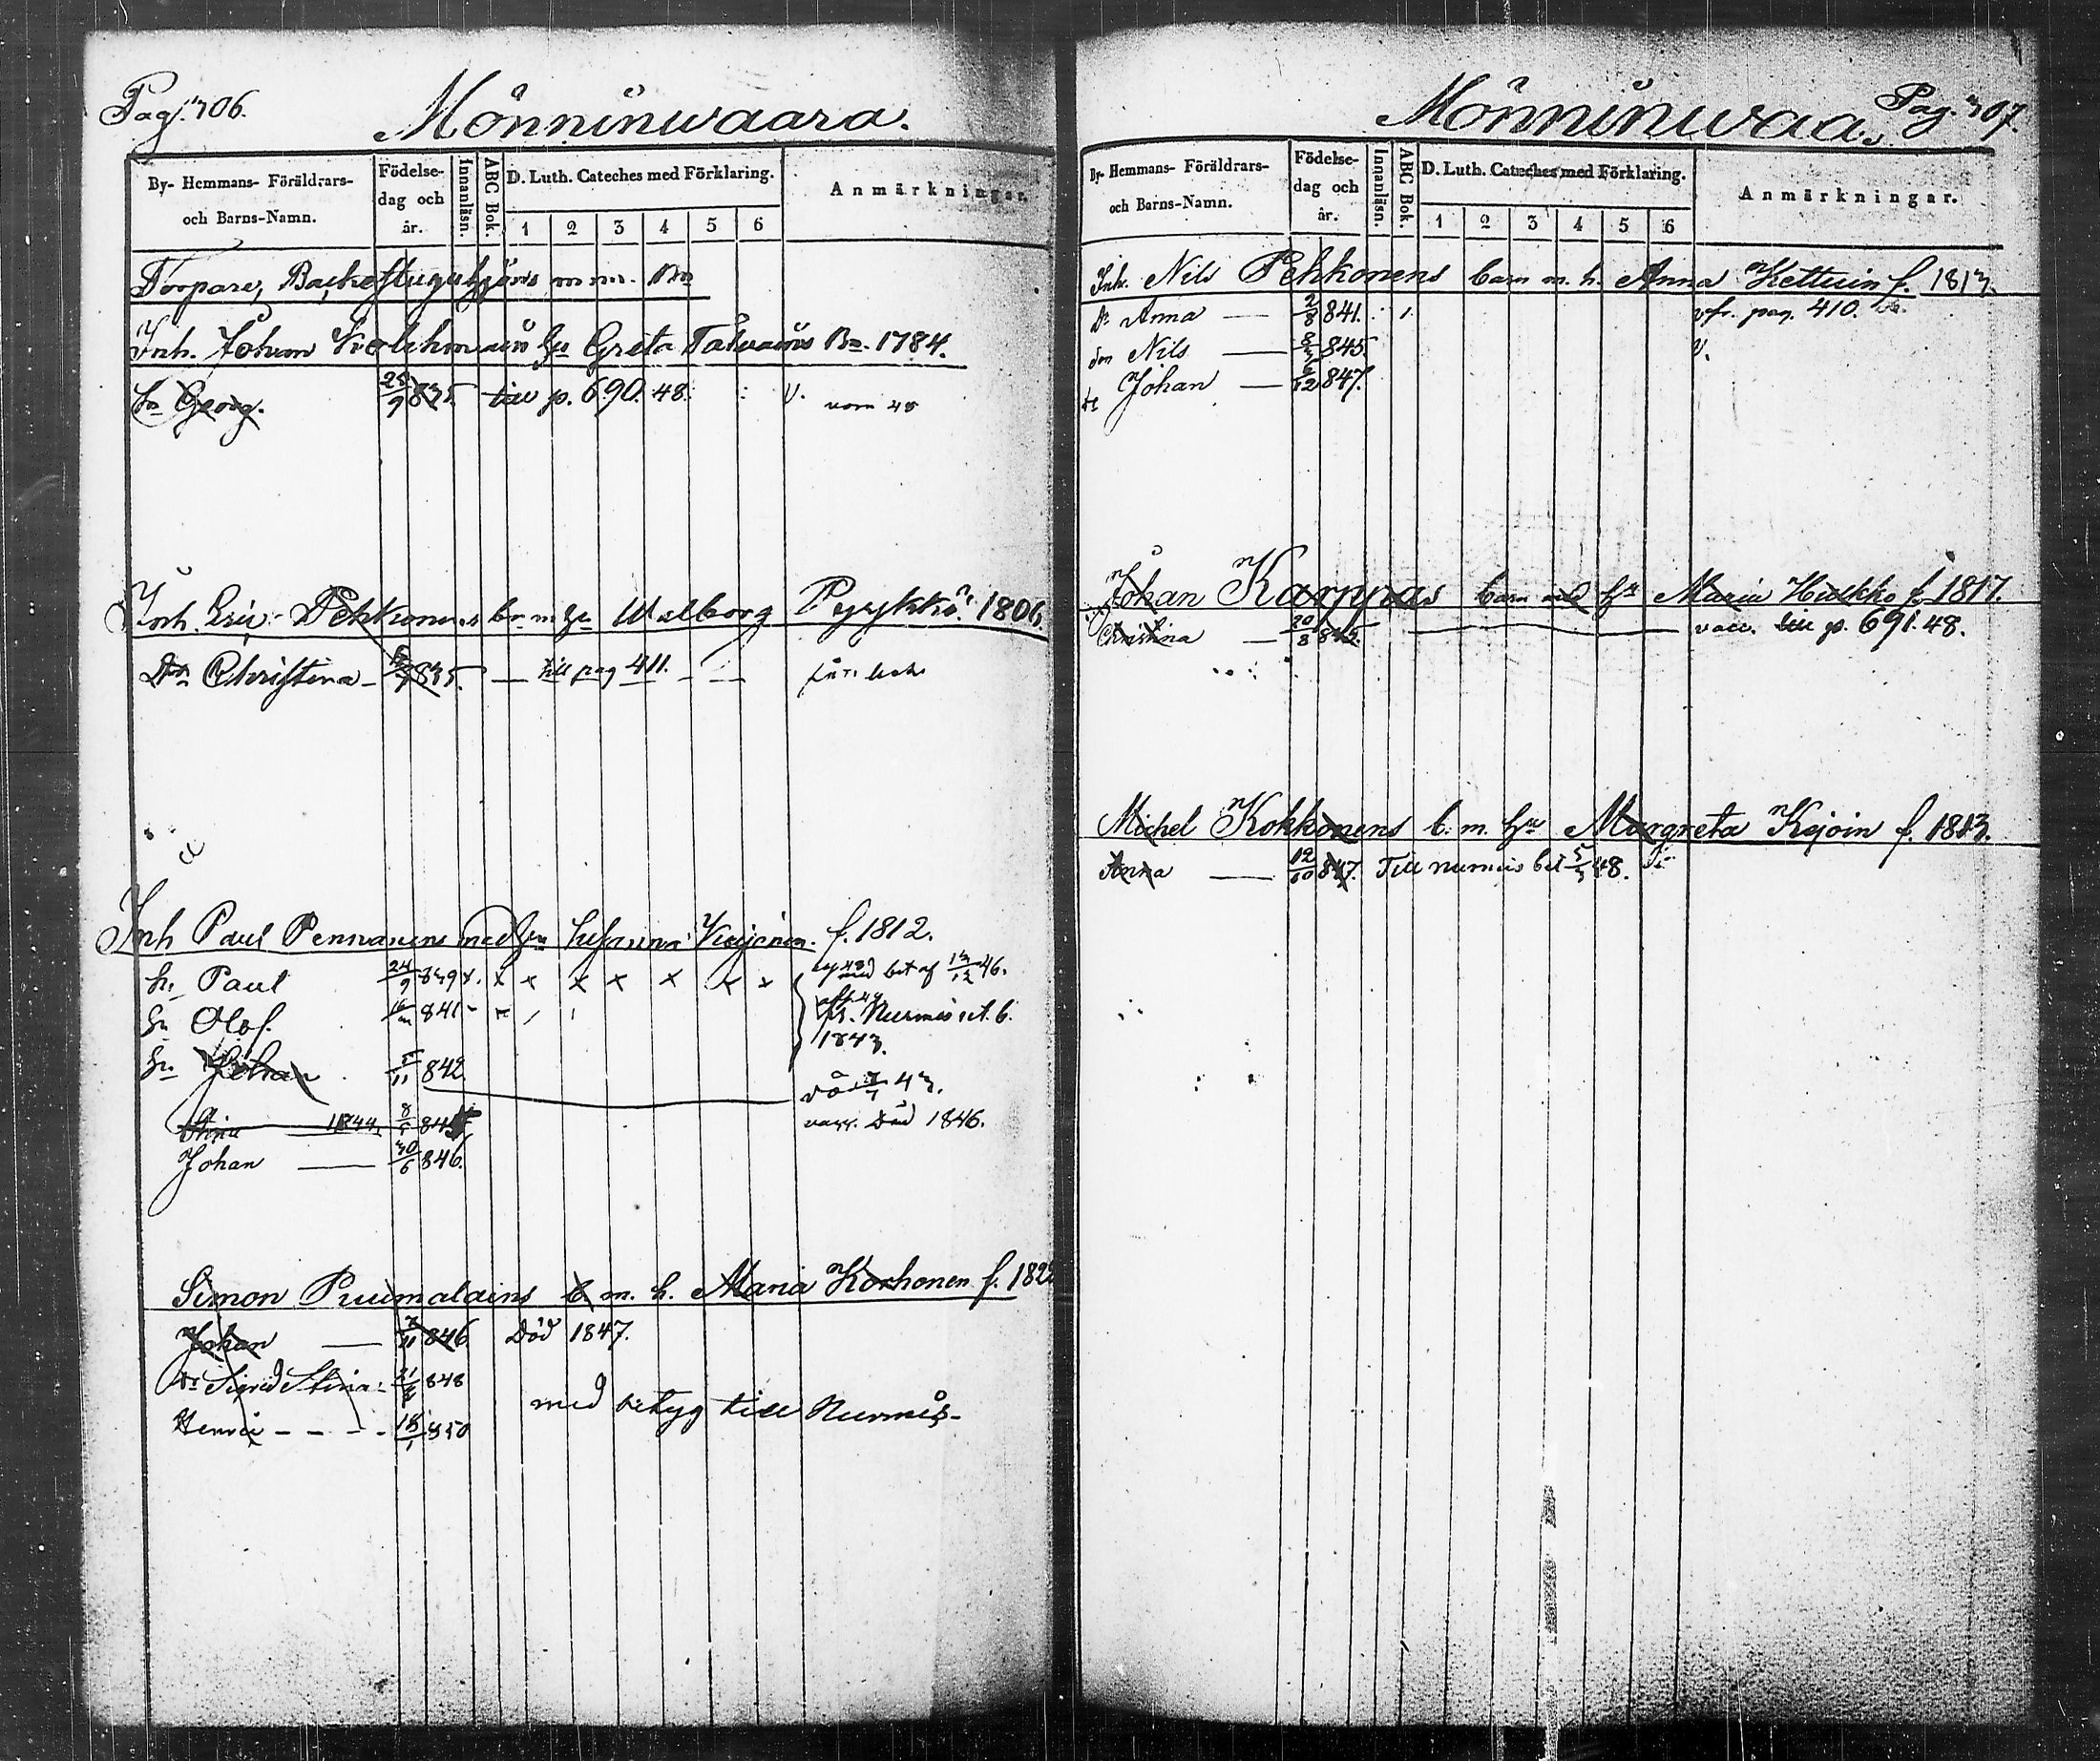 Pag. 306.
Mönninwaara.
By- Hemmans- Föräldrars- och Barns-Namn.
Födelse-dag och år.
Innanläsn.
ABC Bok.
D. Luth. Cateches med Förklaring.
1 2 3 4 5 6
Anmärkningar.
Torpare, Backstuguhjons m.m. Bn
Inh. Johan hu Greta Bn. 1784.
Sn Georg. 25/9 835. till p. 690. 48. v.
Inh. Eric Pehkonens bn m hu Walborg Pyykkö. 1806.
Dr Christina 835. till pag 411.
Inh Paul Pennanens med hu f. 1812.
Sn Paul 24/9 839 x. x x x x x x x bet af 13/12 46.
Sn Olof. 841 Nurmis
1843.
Sn Johan 5/11 842 43.
Stina 1844. 8/5 845 vacc. Död 1846.
Johan 30/6 846.
Simon Puumalains b. m. h. Maria Korhonen f. 182
Johan 846 Död 1847.
Dr Sigrid Stina 848
med betyg till Nurmis
Henric 18/1 850
Pag. 307.
Mönninwaa
By- Hemmans- Föräldrars- och Barns-Namn.
Födelse-dag och år.
Innanläsn.
ABC Bok.
D. Luth. Cateches med Förklaring.
1 2 3 4 5 6
Anmärkningar.
Inh. Nils Pehkonens barn m. h. Anna Kettuin f. 1813.
Dr Anna 2/8 841. vfr. pag. 410.
Nils 845. v.
Johan 847.
Johan Karppas barn med hu Maria Hukko f. 1817.
Christina 20/8 till p. 691. 48.
Michel Kokkonens b. m. hu Margreta Kejoin f. 1813.
Anna 12/10 847. Till Nurmis bet 5/3 48.